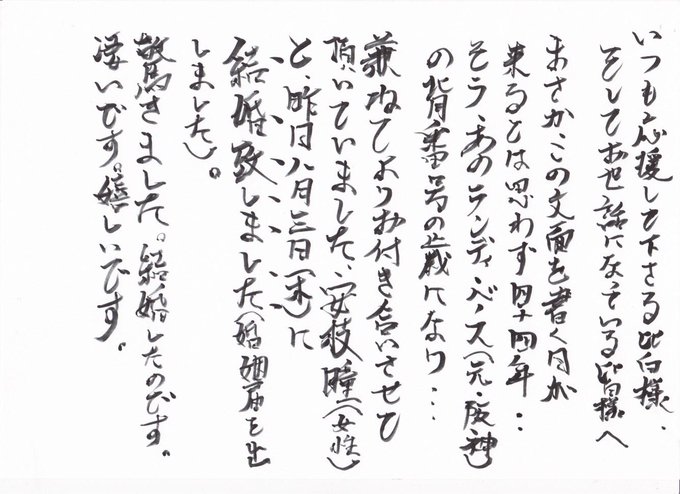 いつも応援して下さる皆様、
そしてお世話になっている皆様へ
まさか、この文面を書く日が
来るとは思わず四十四年‥
そう、あのランディ・バース(元・阪神)
の背番号の歳になり…
兼ねてよりお付き合いさせて
頂いていました、安枝瞳(女性)
と、昨日八月三日(木)に
結婚致しました(婚姻届を出
しました)。
驚きました。結婚したのです。
凄いです。嬉しいです。